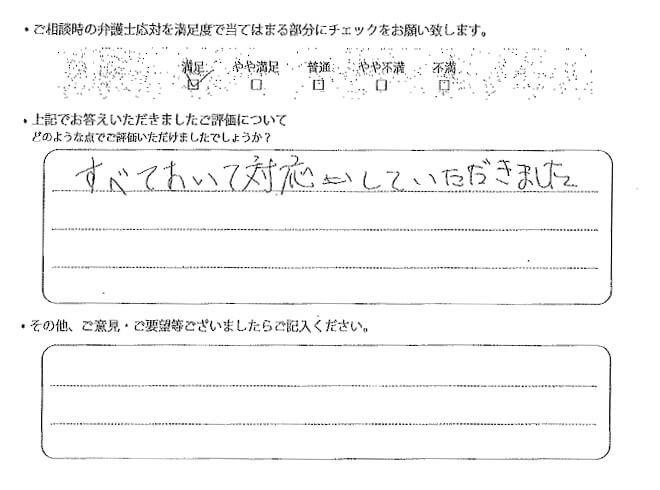 ・ご相談時の弁護士応対を満足度で当てはまる部分にチェックをお願い致します。
満足 やや満足 普通 やや不満 不満
・上記でお答えいただきましたご評価について
どのような点でご評価いただけましたでしょうか？
すべておいて対応していただきました
・その他、ご意見・ご要望等ございましたらご記入ください。